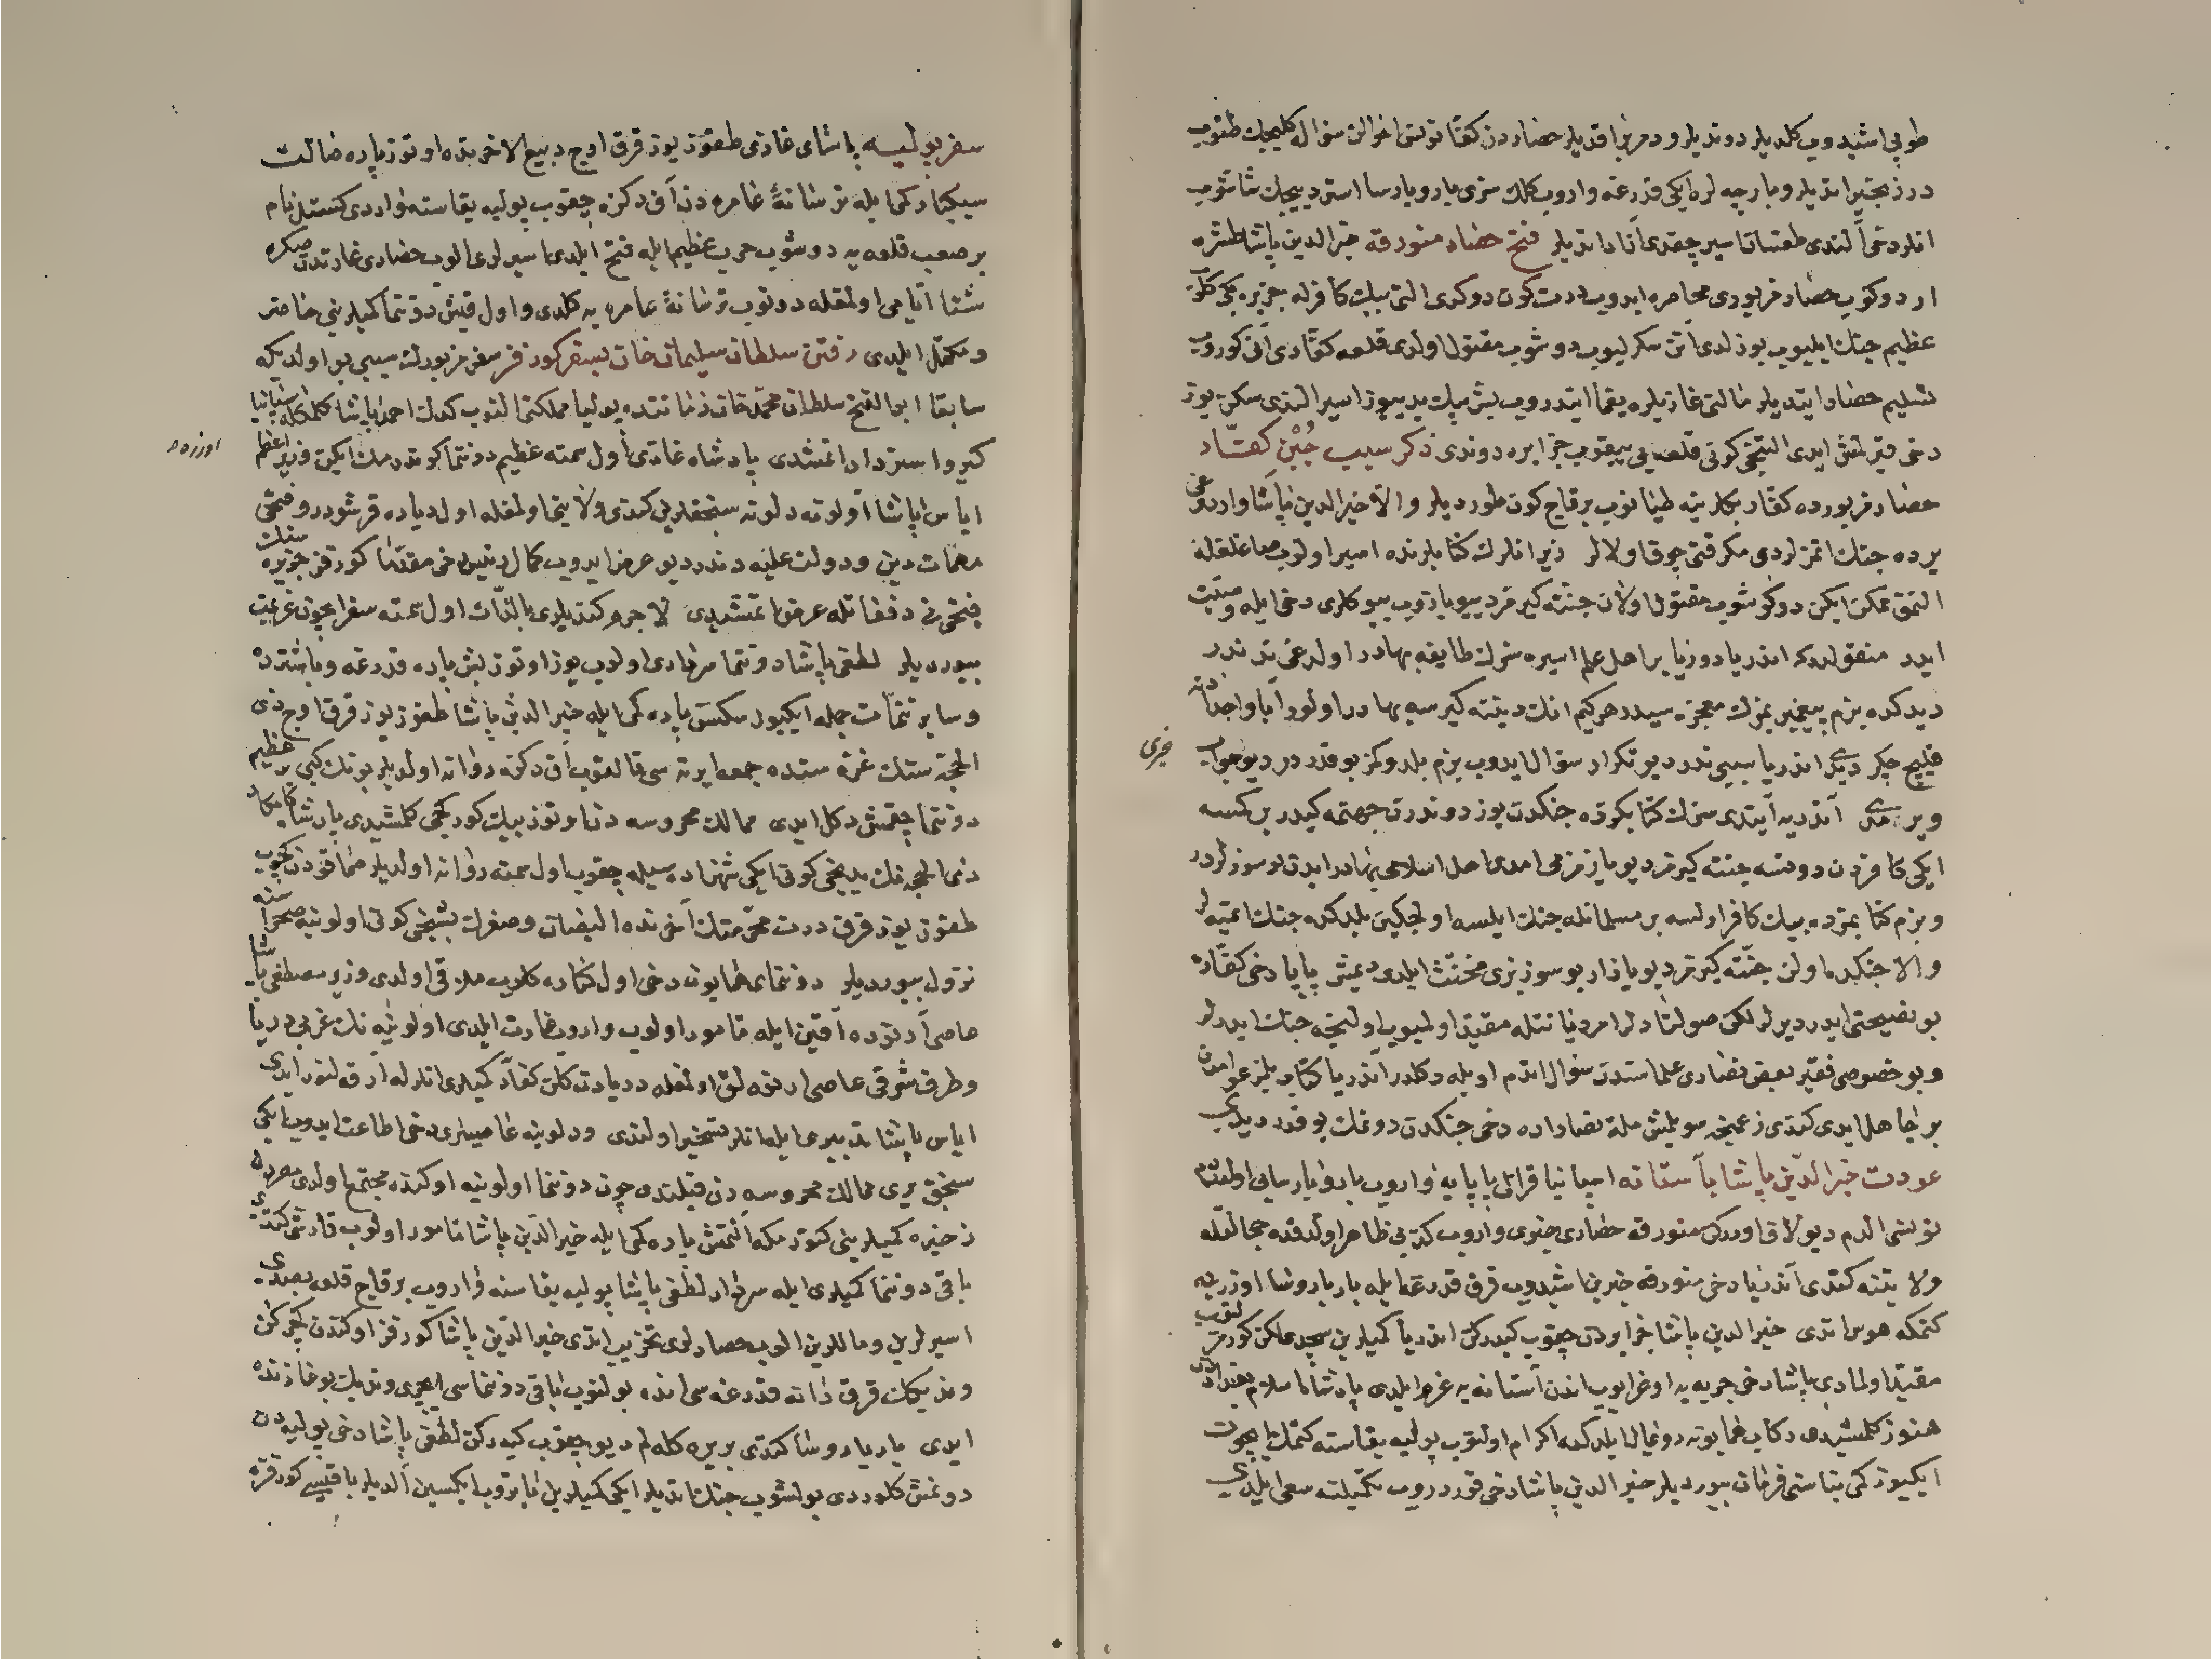 طوپی اشیدوب کلدیلر دوندیلر و دمر براقدیلر حصاردن کفار توبتی اخوالن سؤال کلیجك طتوب
درزنجیر اتدیلر و بارچه لره ایکی قدرغه واروب کلك سزی بارو بارسا استر دییجك شاشوب
انلر دخی آلندی طقسان اسیر چقدی آزاد اتدیلر فتح حصار منورقه خیرالدین پاشا طشره
اردو قوروب حصار مزبوری محاصره ایدوب درت کون دوکدی التی بیك کافرله جزیره بکی کلوب
عظیم جنك ایلیوب یوز لدی آتن سکرلیوب دوشوب مقتول اولدی قلعه کفاری آنی کوروب
تسلیم حصار ایتدیلر مالنی غازیلره یغما ایتدروب بش بیك یدییوز اسیر الندی سکز یوز
دخی قیرلمش ایدی التنجی کونی قلعه یی ییقوب جزایره دوندی ذکر سبب جبن کفار
حصار مزبورده کفار بکلرینه طیانوب برقاج کون طوردیلر والا خیرالدین پاشا واردوغی
یرده جنك اتمزلردی مکر قتی چوق اولالر زیرا انلرك کتابلرنده اسیر اولوب صاغلغله
التمق ممکن ایکن دوکوشوب مقتول اولان جنته کیرمز دیو یازوب بیوکلری دخی ایله وصیت
ایدر منقولدرکه اندریا دوریا بر اهل علم اسیره سزك طایفه بهادر اولدغی ندندر
دیدکده بزم پیغمبریمزك معجزه سیدر هرکیم انك دیننه کیرسه بهادر اولور آبا و اجداد دن
قلیج چکر دیدی اندریا سببی ندر دیو تکرار سؤال ایدوب بزم بلدوکمز بو قدر در دیو جواب
خبری
ویرمدی آندریه آیتدی سزك کتابکزده جنکدن یوز دوندرن جهنمه کیدر بر کسه
ایکی کافردن دونسه جنته کیرمز دیو یازمزمی امدی اهل اسلامی بهادر ایدن بو سوزلردر
و بزم کتابمزده بیك کافر اولسه بر مسلمانله جنك ایلسه اولجکین بلدکده جنك اتمیه لر
والا جنکده اولن جنته کیرمز دیو یازار بو سوز بزی مخنث ایلدی دیمش پاپا دخی کفاره
بو نصیحتی ایدر دیرلر لکن صولتادلر امر دیانتله مقید اولمیوب اولنجه جنك ایدرلر
و بو خصوصی فقیر بعض نصاری علماسندن سؤال اتدم اویله دکلدر آندریا کتاب بلمز عوامدن
بر جاهل ایدی کندی زعمنجه سویلمش ملة نصاراده دخی جنکدن دونمك بو قدر دیدی
عودت خیرالدین پاشا بآستانه اسپانیا قرالی پاپایه واروب باروبارسایی اولتم
تونسی الدم دیو لاف اوررکن منورقه حصاری خبری واروب کذبی ظاهر اولدقده خجالتله
ولایتنه کتدی آندریا دخی منورقه خبرین اشیدوب قرق قدرغه ایله باربا روشا اوزرینه
کتمکه هوس اتدی خیرالدین پاشا جزایردن چقوب کیدرکن اندریا کمیلرین سچدی لکن کورمزلنوب
مقید اولمادی پاشا دخی جریه یه اوغرایوب اندن آستانه یه عزم ایلدی پادشاه اسلام بغداددن
هنوز کلمشیدی رکاب همایونه رونمال ایلدکده اکرام اولنوب پولیه یقاسنه کتمك ایچون
ایکیوز کمی بناسنی فرمان بیوردیلر خیرالدین پاشا دخی قوردروب تکمیلنه سعی ایلدی
سفر پولیه پاشای غازی طقوز یوز قرق اوچ ربیع الاخرنده اوتوز پاره ضالت
سبکبار کمی ایله ترسانۀ عامره دن آق دکزه چقوب پولیه یقاسنه واردی کستل نام
بر صعب قلعه یه دوشوب حرب عظیم ایله فتح ایلدی اسیرلری الوب حصاری غارتدن صکره
شتا ایامی اولمغله دونوب ترسانۀ عامره یه کلدی و اول قیش دوننما کمیلرینی حاضر
و مکمل ایلدی رفتن سلطان سلیمان خان بسفر کورفز سفر مزبورك سببی بو اولدیکه
سابقا ابوالفتح سلطان محمد خان زماننده پولیا مملکتی النوب کدك احمد پاشا کلمکله اسپانیا
کیرو استرداد اتمشدی پادشاه غازی اول سمته عظیم دوننما کوندرمك ایکن وزیر اعظم
اوزره
ایاس پاشا اولونه دلونه سنجقلریی کندی ولایتی اولمغله اول دیاره قرشودر و فتحی
مهمات دین و دولت علیه دندر دیو عرض ایدوب کمال رئیس دخی مقدما کورفز جزیره سنك
فتحنی دفعاتله عرض اتمشیدی لاجرم کندیلری بالذات اول سمته سفر ایچون عزیمت
بیوردیلر لطفی پاشا دوننما سرداری اولوب یوز اوتوز بش پاره قدرغه و باشترده
و سایر نتمات جمله ایکییوز سکسن پاره کمی ایله خیرالدین پاشا طقوز یوز قرق اوچ ذی
الحجه سنك غره سنده جمعه ایرته سی قالقوب آق دکزه روانه اولدیلر بونك کبی بر عظیم
دوننما چقمش دکل ایدی ممالك محروسه دن اوتوز بیك کورکجی کلمشیدی پادشاه کامکار
ذی الحجه نك یدیجی کونی ایکی شهزاده سیله چقوب اول سمته روانه اولدیلر صماقودن کچوب
طقوز یوز قرق درت محرمنك آخرنده البصان و صفرك بشنجی کونی اولونیه صحراسنه
نزول بیوردیلر دوننمای همایون دخی اول کناره کلوب ملاقی اولدی وزیر مصطفی پاشا
عاصی آرنوده آقین ایله مامور اولوب واروب غارت ایلدی اولونیه نك غربی دریا
و طرف شرقی عاصی ارنودلق اولمغله دریادن کلن کفار کمیلری انلرله آرقه لنور ایدی
ایاس پاشا تدبیری ایله انلر تسخیر اولندی و دلونیه عاصیلری دخی اطاعت ایدوب ایکی
سنجق یری ممالك محروسه دن قیلندی چون دوننما اولونیه اوکنده مجتمع اولدی مصردن
ذخیره کمیلرینی کتورمکه آلتمش پاره کمی ایله خیرالدین پاشا مامور اولوب قارشو کتدی
باقی دوننما کمیلری ایله سردار لطفی پاشا پولیه یقاسنه واروب برقاج قلعه بصدی
اسیرلرین و ماللرین الوب حصارلری تخریب اتدی خیرالدین پاشا کورفز اوکندن کچرکن
وندیکك قرق دانه قدرغه سی انده بولنوب باقی دوننماسی ایچری وندیك بوغازنده
ایدی باربا روشا کتدی بریره کله لم دیو چقوب کیدرکن لطفی پاشا دخی پولیه دن
دونمش کلوردی بولشوب جنك اتدیلر ایکی کمیلرین باتروب ایکسین آلدیلر باقیسی کورفزه